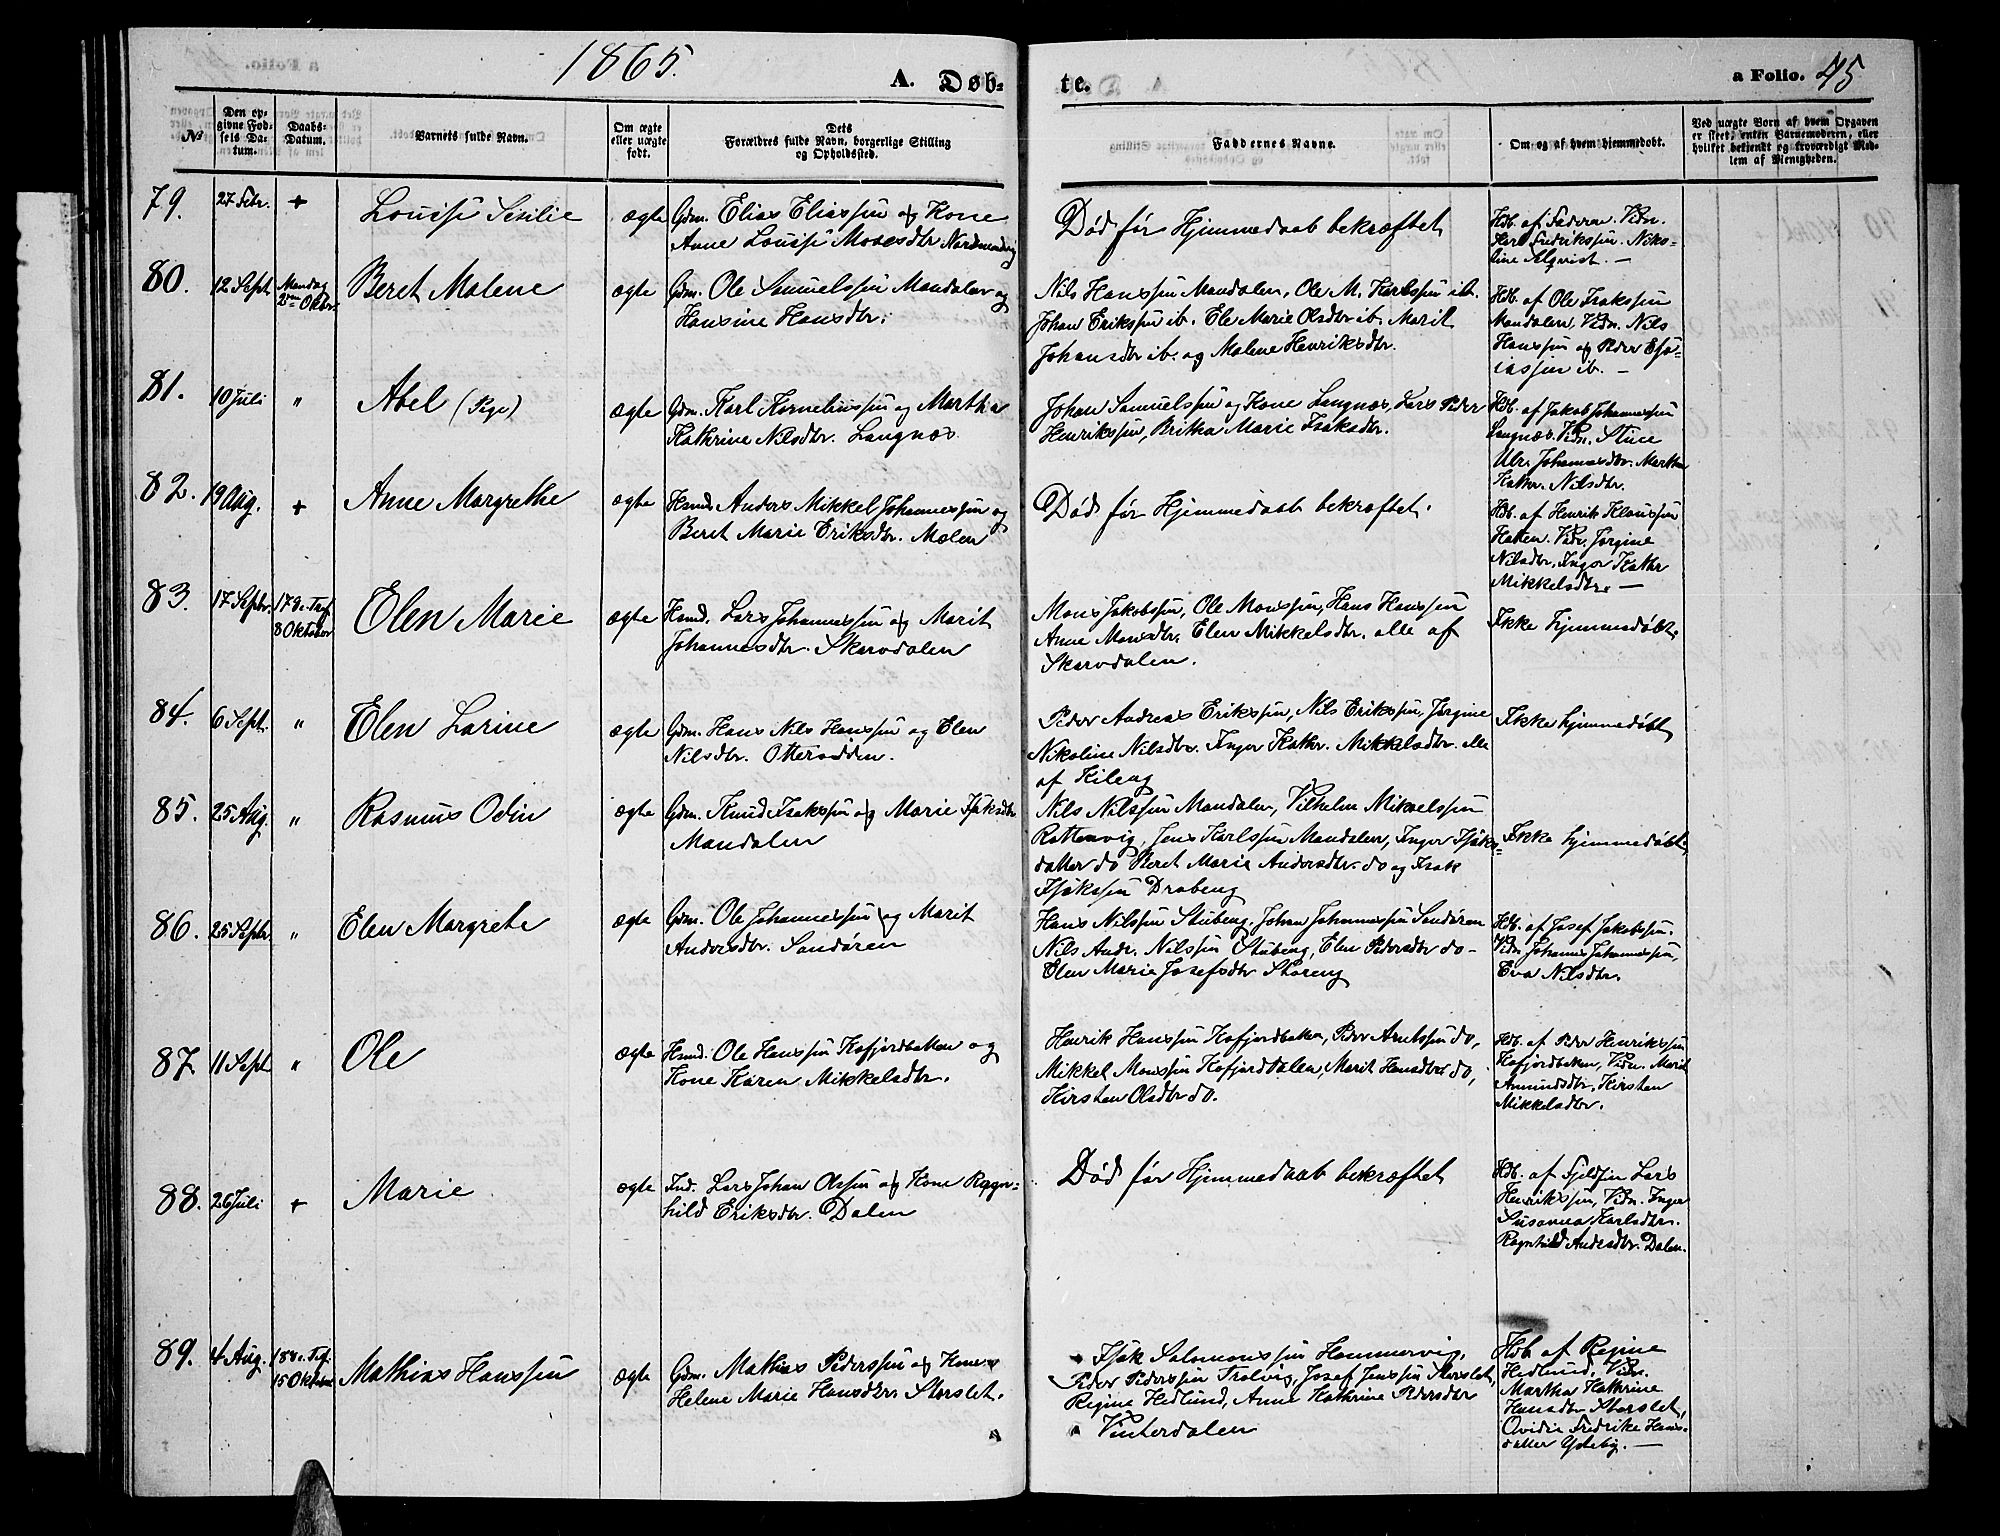 1865.
A. Døb-
te.
a Folio. 45
№
Den op-
givne Fød-
sels Da-
tum.
Daabs-
Datum.
Barnets fulde Navn.
Om ægte
eller uægte
født.
Dets
Forældres fulde Navn, borgerlige Stilling
og Opholdssted.
Faddernes Navne.
Om og af hvem hjemmedøbt.
Ved uægte Børn af hvem Opgaven
er skeet, enten Barnemoderen, eller
hvilket bekjendt og troværdigt Med-
lem af Menigheden.
79. 27 Febr. + Louise Sesilie ægte Gdm. Elias Eliassen og Kone
Anne Louise Mosesdtr Nordmandvig
Død før Hjemmedaab bekræftet
Hdb. af Faderen. Vidn.
Karl Fredrikssen. Niko-
line Alqvist. —
80. 12 Sept. Mandag
2den Oktbr. Beret Malene ægte Gdm. Ole Samuelssen Mandalen og
Hansine Hansdtr.
Nils Hanssen Mandalen, Ole M. Karlssen ib.
Johan Erikssen ib. Ele Marie Olsdtr ib. Marit
Johansdtr ib. og Malene Henriksdtr.
Hdb. af Ole Isakssen
Mandalen, Vidn. Nils
Hanssen og Peder Esa-
iassen ib. —
81. 10 Juli " Abel (Pige) ægte Gdm. Karl Korneliussen og Martha
Kathrine Nilsdtr. Langnæs.
Johan Samuelssen og Kone Langnæs, Lars Peder
Henrikssen, Britha Marie Isaksdtr.
Hdb. af Jakob Johannessen
Langnæs. Vidn. Stine
Ulr. Johannesdtr. Martha
Kathr. Nilsdtr.
82. 19 Aug. + Anne Margrethe ægte Hsmd. Anders Mikkel Johannessen og
Beret Marie Eriksdtr. Molen
Død før Hjemmedaab bekræftet.
Hdb. af Henrik Klaussen
Hatten. Vidn. Jørgine
Nilsdtr, Inger Kathr
Mikkelsdtr. —
83. 17 Septbr. 17 S. e. Tref.
8 Oktober Elen Marie ægte Hsmd. Lars Johannessen og Marit
Johannesdtr. Skarvdalen
Mons Jakobssen, Ole Monssen, Hans Hanssen
Anne Monsdtr. Elen Mikkelsdtr. alle af
Skarvdalen.
Ikke hjemmedøbt.
84. 6 Sept. " Elen Larine ægte Gdm. Hans Nils Hanssen og Elen
Nilsdtr. Otterodden.
Peder Andreas Erikssen, Nils Erikssen, Jørgine
Nikoline Nilsdtr. Inger Kathr. Mikkelsdtr. alle
af Kileng
Ikke hjemmedøbt
85. 25 Aug. " Rasmus Odin ægte Gdm. Knud Isakssen og Marie Isaksdtr
Mandalen
Nils Nilssen Mandalen, Vilhelm Mikaelssen
Rottenvig, Jens Karlssen Mandalen, Inger Isaks-
datter do Beret Marie Andersdtr. do og Isak
Isakssen Drabeng
Ikke hjemmedøbt,
86. 25 Septbr. " Elen Margrete ægte Gdm. Ole Johannessen og Marit
Andersdtr. Sandøren
Hans Nilssen Stubeng, Johan Johannessen Sandøren
Nils Andr. Nilssen Stubeng, Elen Pedersdtr do-
Elen Marie Josefsdtr Storeng
Hdb. af Josef Jakobssen.
Vidn. Johannes Johannessen,
Eva Nilsdtr.
87. 11 Sept " Ole ægte Hsmd. Ole Hanssen Kofjordbotten og
Kone Karen Mikkelsdtr.
Henrik Hanssen Kofjordbotten, Peder Arntssen do,
Mikkel Monssen Kofjorddalen, Marit Hansdtr do,
Kirsten Olsdtr do.
Hdb. af Peder Henrikssen
Kofjordbotten, Vidn. Marit
Amundsdtr, Kirsten
Mikkelsdtr.
88. 26 Juli + Marie ægte Ind. Lars Johan Olssen og Kone Ragn-
hild Eriksdtr. Dalen
Død før Hjemmedaab bekræftet
Hdb. af Fjeldfin Lars
Henrikssen, Vidn. Inger
Susanna Karlsdtr.
Ragnhild Andersdtr. Dalen.
89. 4 Aug. 18 S. e. Tref.
15 Oktober Mathias Hanssen ægte Gdm. Mathias Pederssen og Kone
Helene Marie Hansdtr. Storslet.
Isak Salomonssen Hammervig,
Peder Pederssen Trolvig, Josef Jenssen Storslet,
Regine Hedlund, Anne Kathrine Pedersdtr
Vinterdalen
Hdb af Regine
Hedlund, Vidn.
Martha Kathrine
Hansdtr Storslet,
Ovidie Fredrike Hans-
datter Ytreby. —